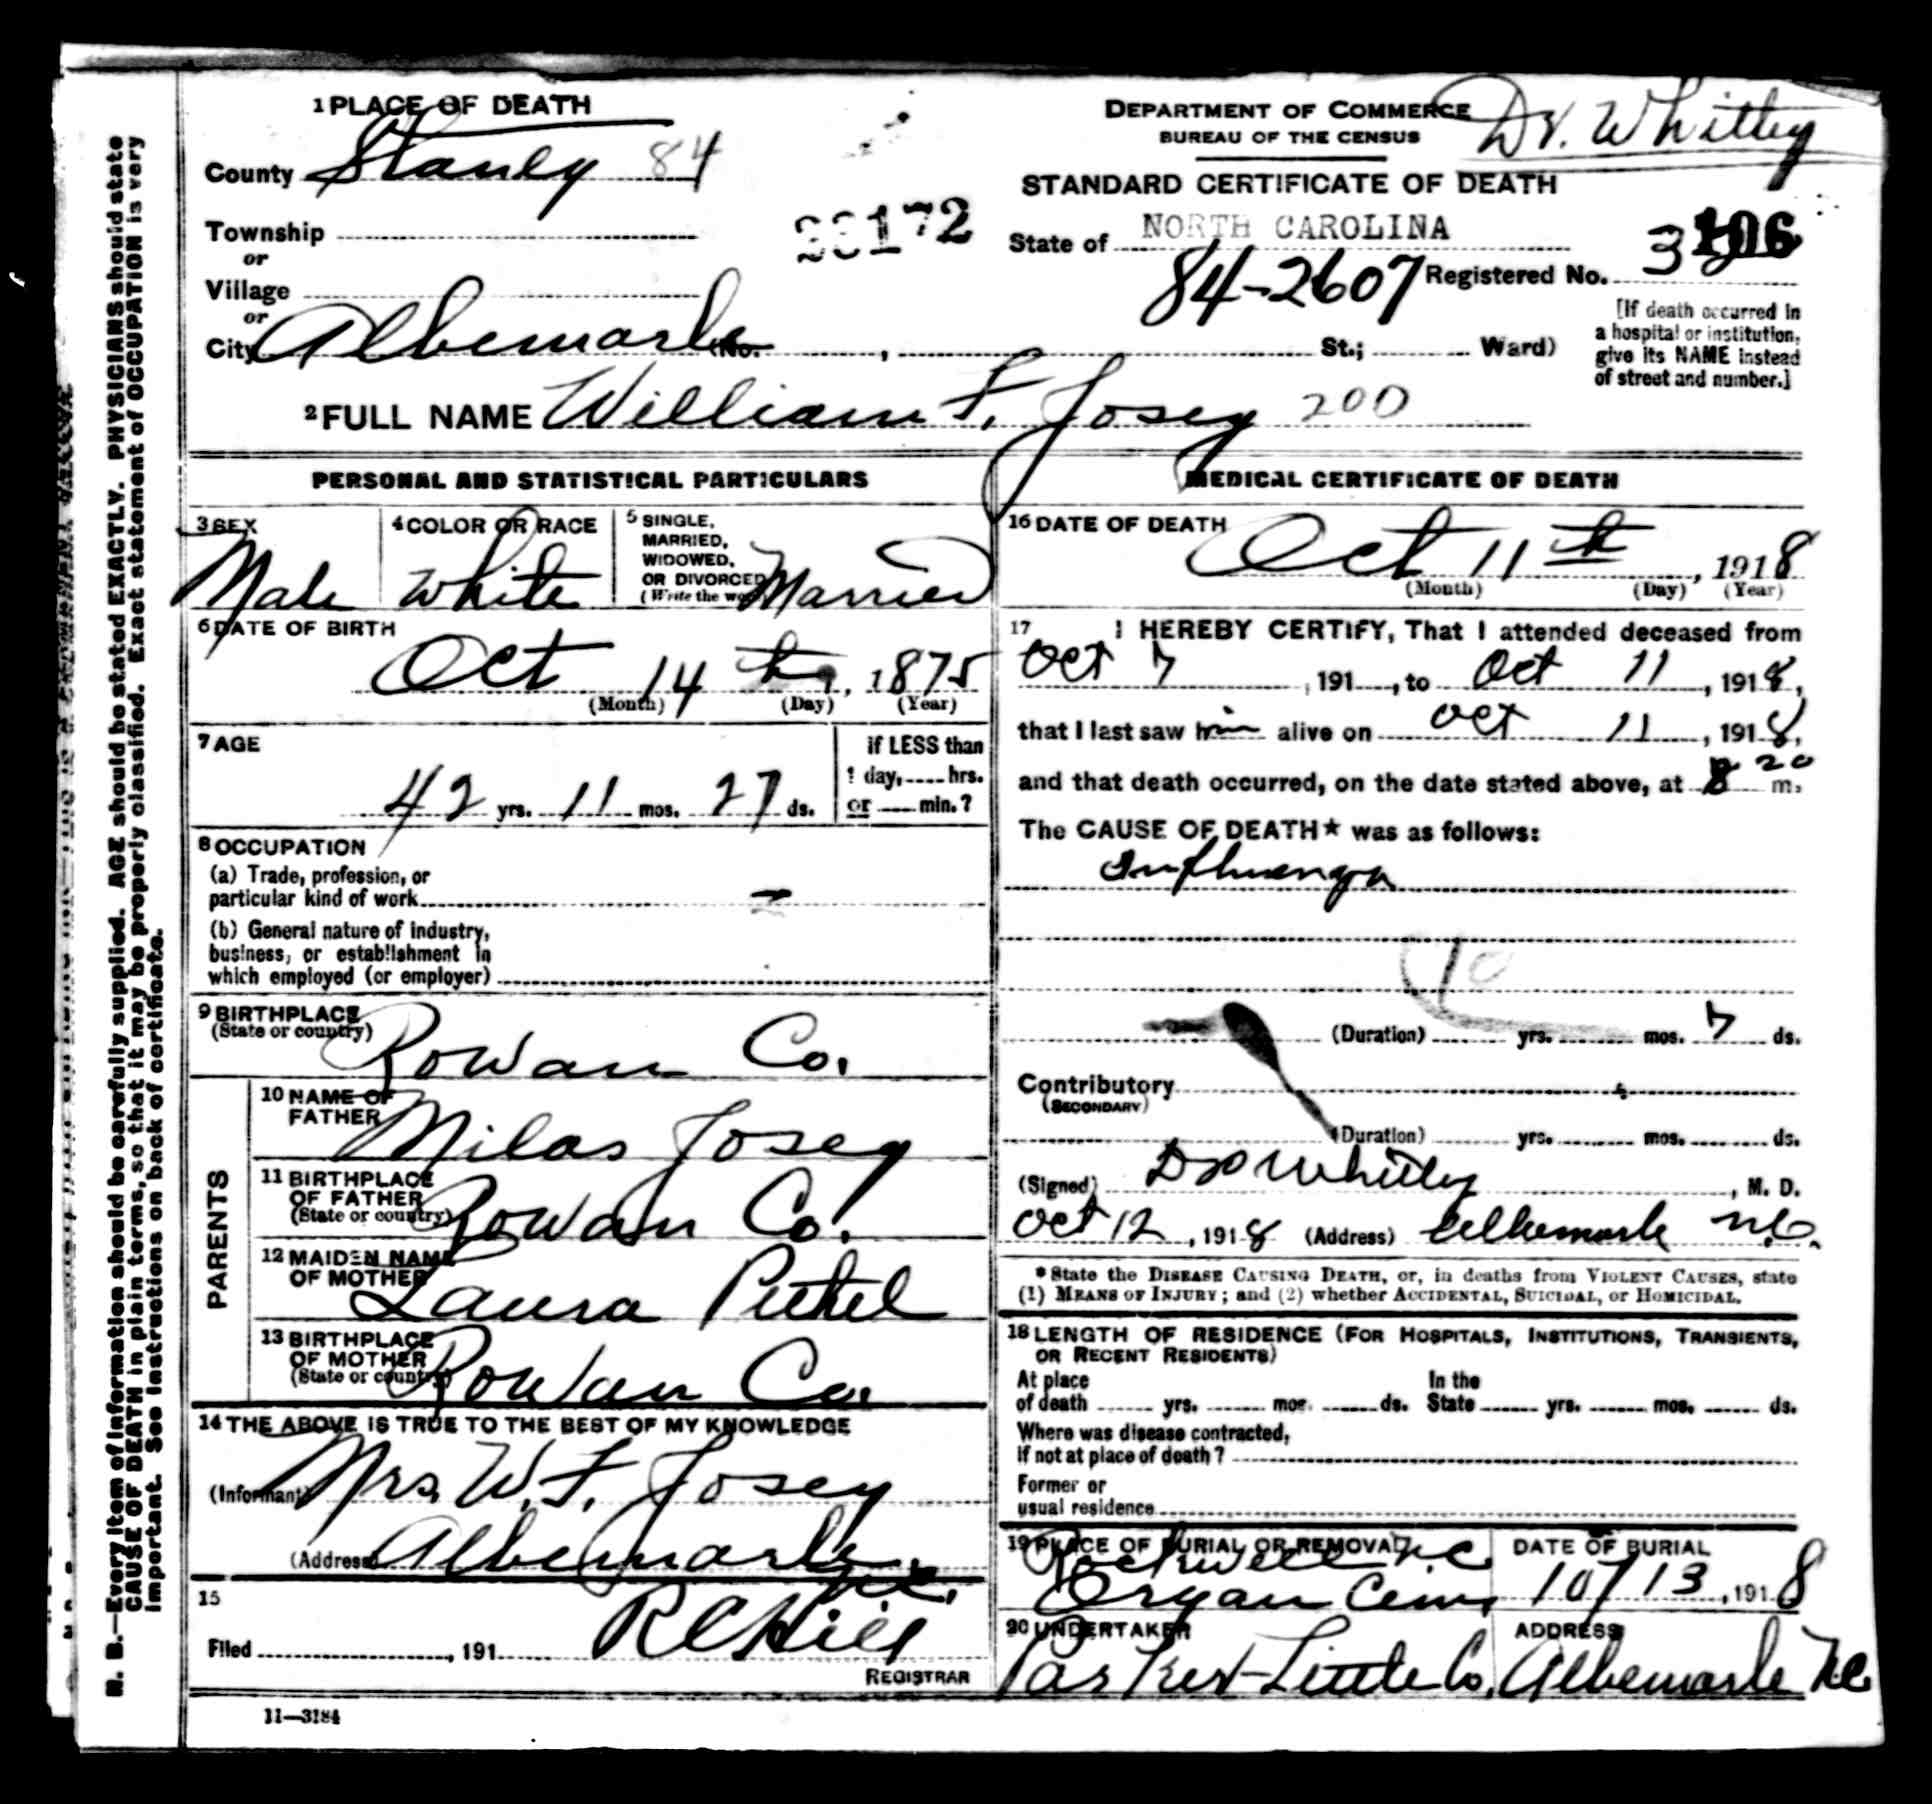 1 PLACE OF DEATH
County Stanly 84
Township
or
Village
or
City Albemarle (No. , St.; Ward)
172
DEPARTMENT OF COMMERCE
BUREAU OF THE CENSUS
Dr. Whitley
STANDARD CERTIFICATE OF DEATH
State of NORTH CAROLINA
84-2607 Registered No. 106
[If death occurred in
a hospital or institution,
give its NAME instead
of street and number.]
2 FULL NAME William F. Josey 200
PERSONAL AND STATISTICAL PARTICULARS
3 SEX
Male
4 COLOR OR RACE
White
5 SINGLE,
MARRIED,
WIDOWED,
OR DIVORCED
(Write the word)
Married
6 DATE OF BIRTH
Oct 14 th, 1875
(Month) (Day) (Year)
7 AGE
42 yrs. 11 mos. 27 ds.
If LESS than
1 day, hrs.
or min.?
8 OCCUPATION
(a) Trade, profession, or
particular kind of work -
(b) General nature of industry,
business, or establishment in
which employed (or employer)
9 BIRTHPLACE
(State or country)
Rowan Co.
PARENTS
10 NAME OF
FATHER
Milas Josey
11 BIRTHPLACE
OF FATHER
(State or country)
Rowan Co.
12 MAIDEN NAME
OF MOTHER
Laura
13 BIRTHPLACE
OF MOTHER
(State or country)
Rowan Co.
14 THE ABOVE IS TRUE TO THE BEST OF MY KNOWLEDGE
(Informant) Mrs. W. F. Josey
(Address) Albemarle, N.C.
15
Filed , 191 R C Hill
REGISTRAR
11—3184
MEDICAL CERTIFICATE OF DEATH
16 DATE OF DEATH
Oct 11 th, 1918
(Month) (Day) (Year)
17 I HEREBY CERTIFY, That I attended deceased from
Oct 7, 191 , to Oct 11, 1918,
that I last saw him alive on Oct 11, 1918,
and that death occurred, on the date stated above, at 8 20 m.
The CAUSE OF DEATH* was as follows:
Influenza
10
(Duration) yrs. mos. 7 ds.
Contributory
(SECONDARY)
(Duration) yrs. mos. ds.
(Signed) Whitley, M. D.
Oct 12, 1918 (Address) Albemarle N.C.
*State the DISEASE CAUSING DEATH, or, in deaths from VIOLENT CAUSES, state
(1) MEANS OF INJURY; and (2) whether ACCIDENTAL, SUICIDAL, or HOMICIDAL.
18 LENGTH OF RESIDENCE (FOR HOSPITALS, INSTITUTIONS, TRANSIENTS,
OR RECENT RESIDENTS)
At place
of death yrs. mos. ds.
In the
State yrs. mos. ds.
Where was disease contracted,
If not at place of death?
Former or
usual residence
19 PLACE OF BURIAL OR REMOVAL
Rockwell N.C.
Organ Cem.
DATE OF BURIAL
10/13, 1918
20 UNDERTAKER
Parker-Little Co.
ADDRESS
Albemarle N.C.
N. B.—Every item of information should be carefully supplied. AGE should be stated EXACTLY. PHYSICIANS should state
CAUSE OF DEATH in plain terms, so that it may be properly classified. Exact statement of OCCUPATION is very
important. See instructions on back of certificate.